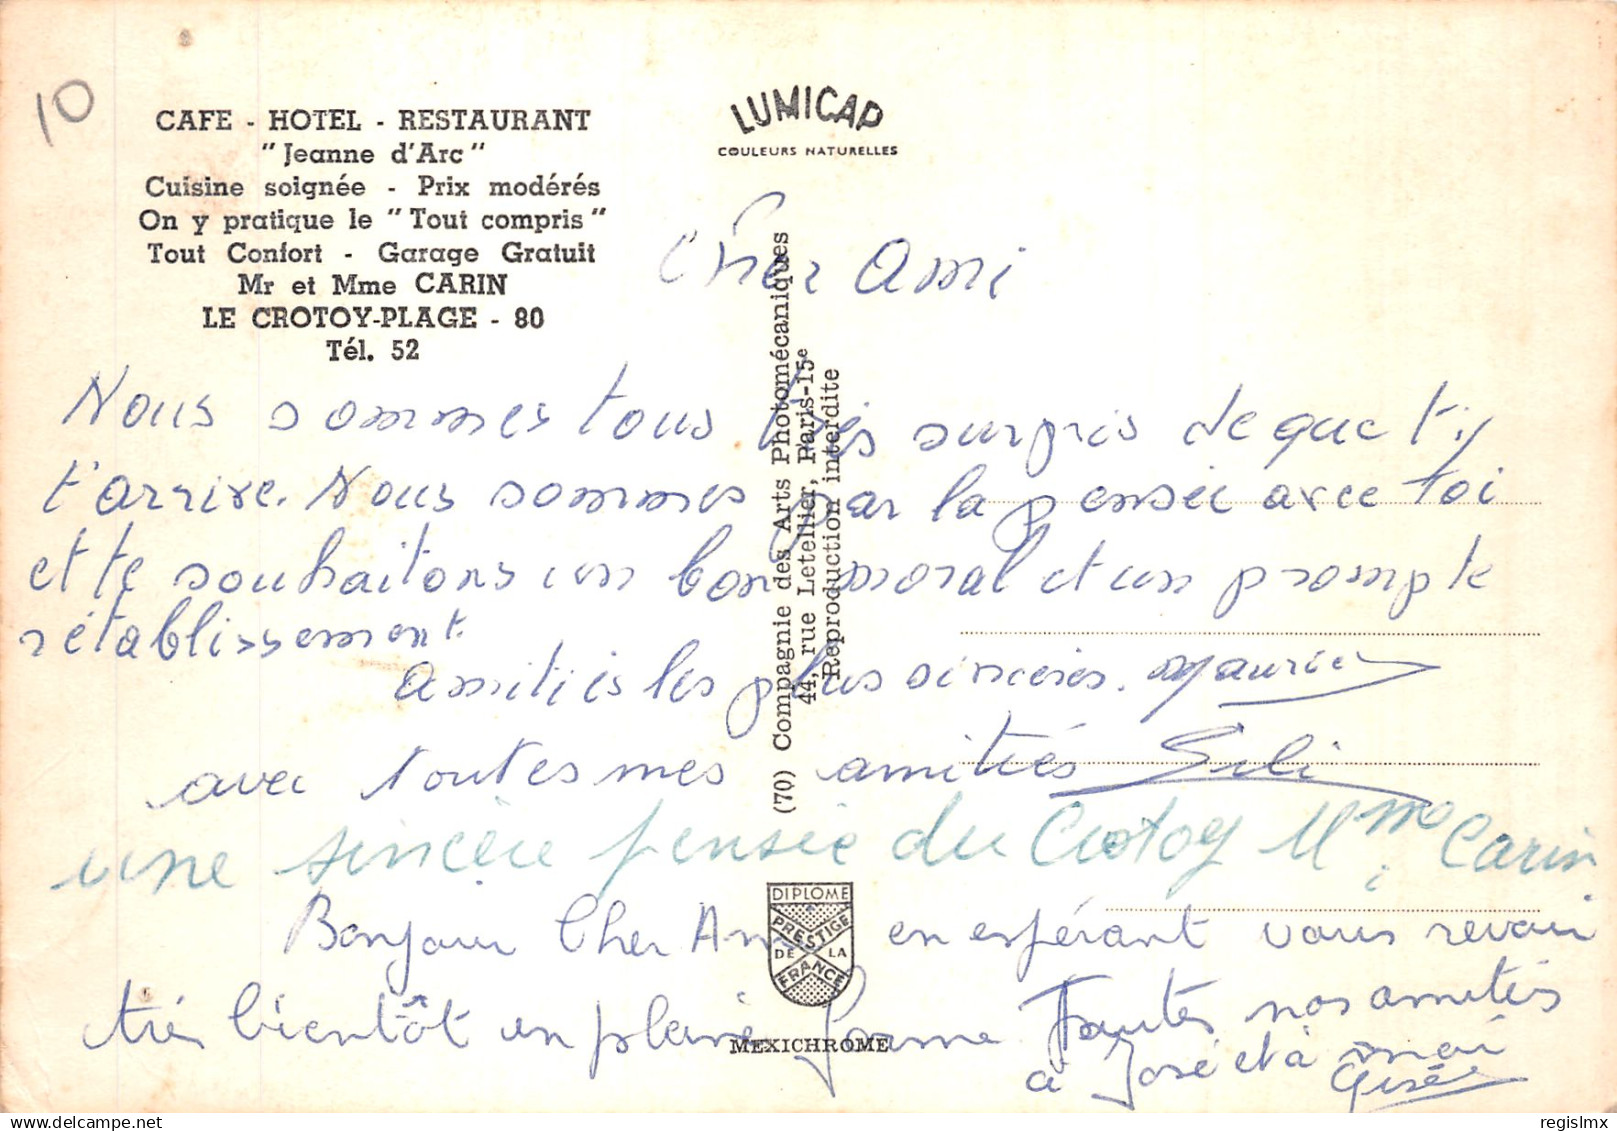 10
CAFE - HOTEL - RESTAURANT
"Jeanne d'Arc"
Cuisine soignée - Prix modérés
On y pratique le "Tout compris"
Tout Confort - Garage Gratuit
Mr et Mme CARIN
LE CROTOY-PLAGE - 80
Tél. 52
LUMICAP
COULEURS NATURELLES
(70) Compagnie des Arts Photomécaniques
44, rue Letellier, Paris-15e
Reproduction interdite
Cher Ami
Nous sommes tous très surpris de que t'
t'arrive. Nous sommes par la pensée avec toi
et te souhaitons un bon moral et un prompte
rétablissement.
amitiés les plus sincères. Maurice
avec toutes mes amitiés
une sincère pensée du Crotoy Mme Carin
Bonjour Cher Ami en espérant vous revoir
très bientôt en pleine forme Toutes nos amitiés
à José et à moi
Gisèle
DIPLOME
PRESTIGE
DE LA
FRANCE
MEXICHROME
regislmx